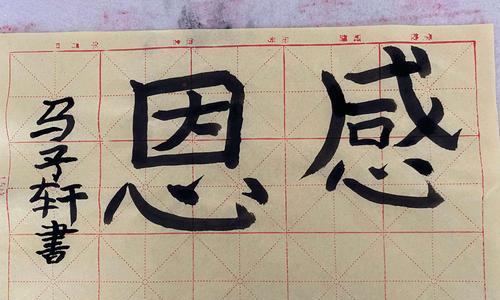 感恩
马子轩書